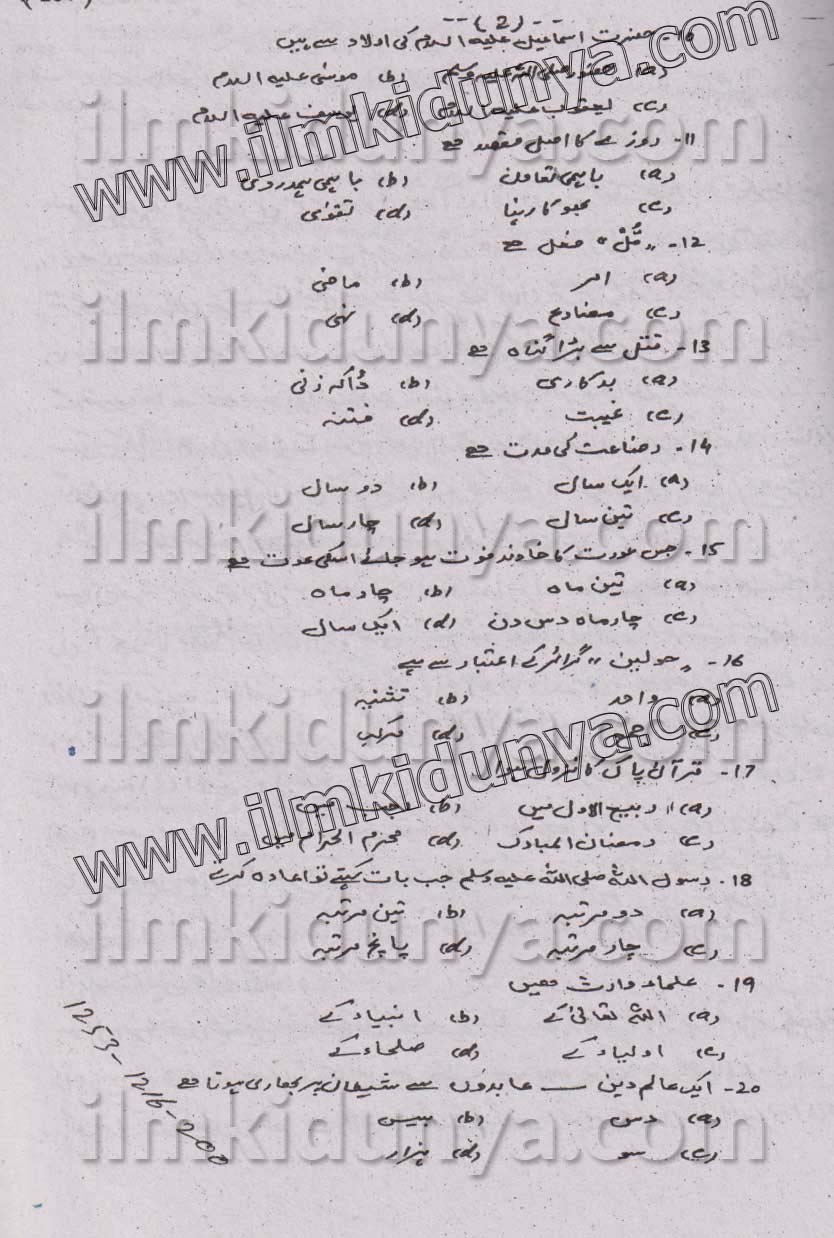 -(2)-
10- حضرت اسماعیل علیہ السلام کی اولاد سے ہیں
(a) حضور صلی اللہ علیہ وسلم (b) موسیٰ علیہ السلام
(c) یعقوب علیہ السلام (d) یوسف علیہ السلام
11- روزے کا اصل مقصد ہے
(a) باہمی تعاون (b) باہمی ہمدردی
(c) بھوکا رہنا (d) تقویٰ
12- "قُلْ" فعل ہے
(a) امر (b) ماضی
(c) مضارع (d) نہی
13- قتل سے بڑا گناہ ہے
(a) بدکاری (b) ڈاکہ زنی
(c) غیبت (d) فتنہ
14- رضاعت کی مدت ہے
(a) ایک سال (b) دو سال
(c) تین سال (d) چار سال
15- جس عورت کا خاوند فوت ہو جائے اسکی عدت ہے
(a) تین ماہ (b) چار ماہ
(c) چار ماہ دس دن (d) ایک سال
16- "حولین" گرائمر کے اعتبار سے ہے
(a) واحد (b) تثنیہ
(c) جمع (d) مرکب
17- قرآن پاک کا نزول ہوا
(a) ربیع الاول میں (b) رجب میں
(c) رمضان المبارک (d) محرم الحرام میں
18- رسول اللہ صلی اللہ علیہ وسلم جب بات کہتے تو اعادہ کرتے
(a) دو مرتبہ (b) تین مرتبہ
(c) چار مرتبہ (d) پانچ مرتبہ
19- علماء وارث ہیں
(a) اللہ تعالیٰ کے (b) انبیاء کے
(c) اولیاء کے (d) صلحاء کے
20- ایک عالم دین ـــ عابدوں سے شیطان پر بھاری ہوتا ہے
(a) دس (b) بیس
(c) سو (d) ہزار
1253-1216-200
www.ilmkidunya.com
www.ilmkidunya.com
ilmkidunya.com
ilmkidunya.com
ilmkidunya.com
ilmkidunya.com
ilmkidunya.com
ilmkidunya.com